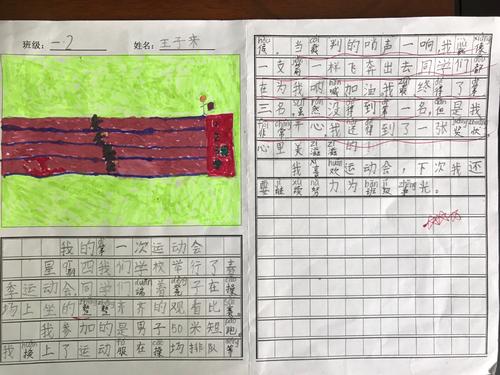 班级：一2 姓名：王子来
我的第一次运动会
星期四我们学校举行了春
季运动会，同学们端着凳子在操
场上坐的整整齐齐的观看比赛。
我参加的是男子50米短跑。
我换上了运动服在操场排队等
候。当裁判的哨声一响，我就像
一支箭一样飞奔出去同学们都
在为我呐喊加油，我最终得了第
三名，虽然没得到第一名，但是我
非常开心，我还得到了一张奖状
心里美滋滋的
我喜欢运动会，下次我还
要继续努力为班级争光。